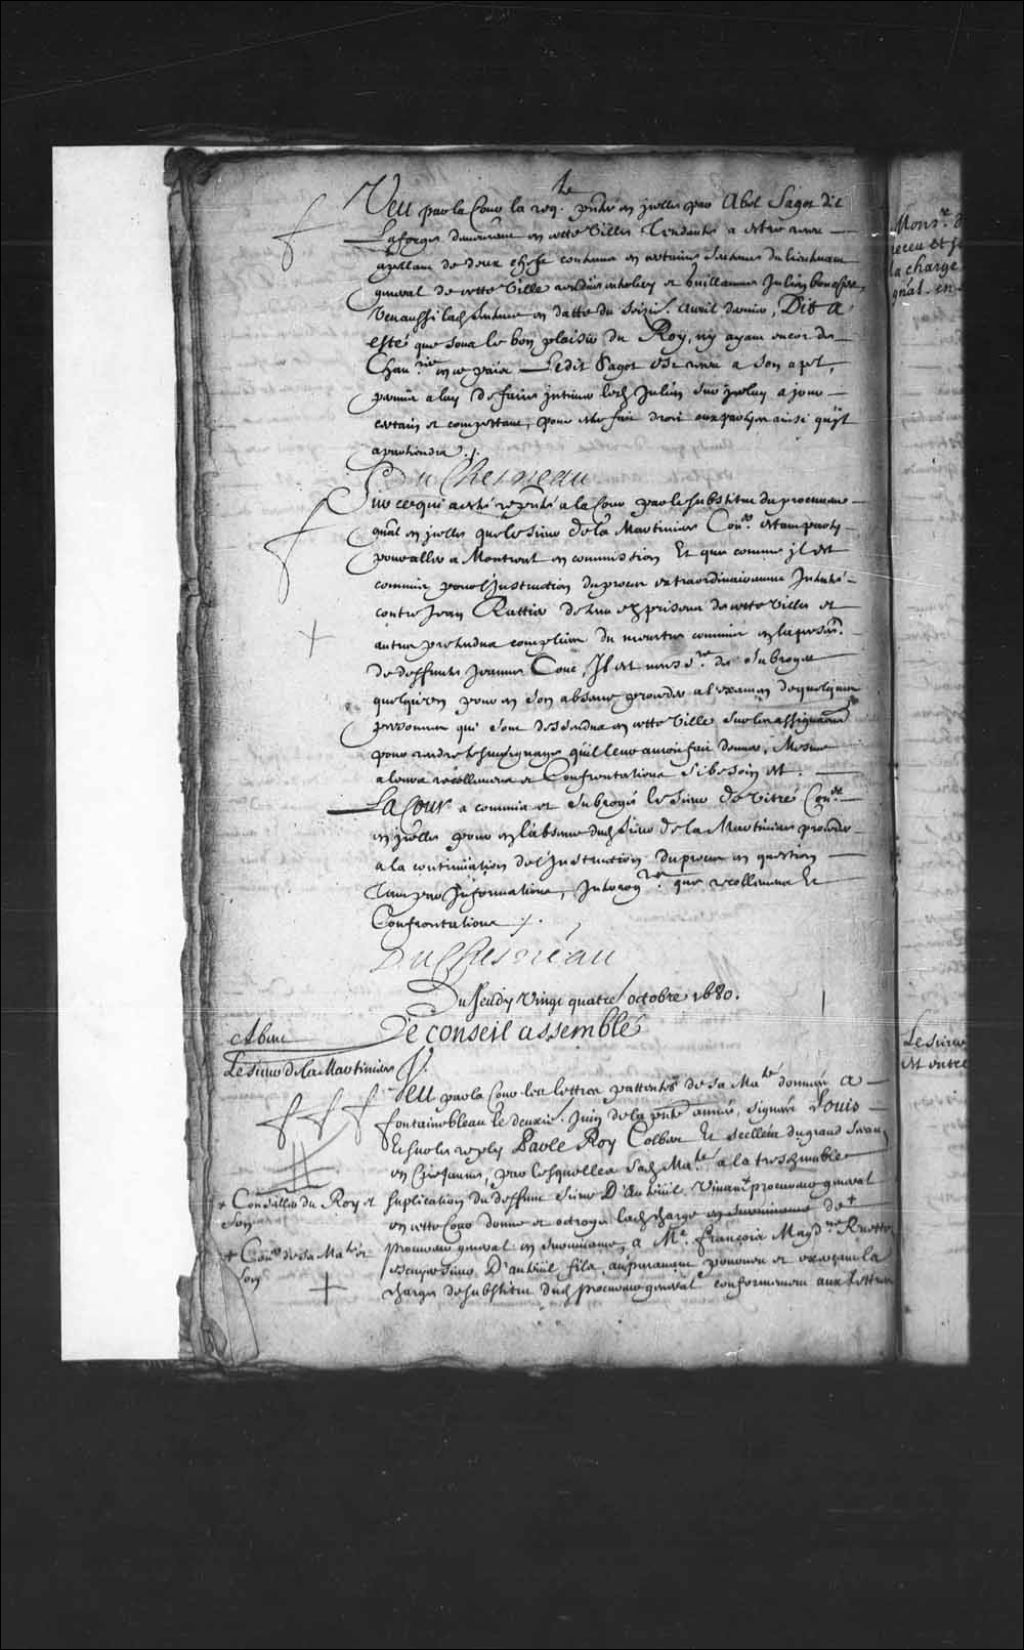 Veu par la Cour la req.te pntée en jcelle par Abel Sagot dit
Laforge demeurant en cette Ville Tendante a estre receu
apellant de deux chefs contenus en certaine Sentence du Lieutenant
general de cette Ville entre luy et Guillaume Julien
Veu aussi lad. Sentence en datte du seizie. avril dernier, Dit a
esté que sous le bon plaisir du Roy, n'y ayant encor de
Chan.rie en ce païs Ledit Sagot est receu a son apel,
permis a luy de faire jntimer led. Julien sur jceluy a jour
certain et competant, pour estre fait droit aux parties ainsi qu'il
apartiendra ./.
DuChesneau
Sur ce qui a esté repnté a la Cour par le substitut du procureur
gnãl en jcelle que le sieur de la Martiniere Con.er estant party
pour aller a Montreal en commission Et que comme jl est
commis pour l'Jnstruction du proces extraordinairement Jntenté
contre Jean Rattier detenu es prisons de cette Ville et
autres pretendus complices du meurtre commis en la person.e
de deffunte Jeanne Couc, Jl est necess.re de subroger
quelqu'un pour en son absence proceder a l'examen de quelques
personnes qui sont dessendus en cette Ville sur les assignations
pour rendre tesmoignage qu'il leur auroit fait donner, Mesme
a leurs recollemens et Confrontations si besoin est.
La Cour a commis et subrogé le sieur de Vitré Con.er
en jcelle pour en l'absence dud. sieur de la Martiniere proceder
a la continüation de l'Jnstruction du proces en question
Tant par Jnformations, Jnterog.res que recollemens Et
Confrontations ./.
DuChesneau
Du Jeudy Vingt quatre octobre 1680.
Le conseil assemblé
Absent
Le sieur de la Martiniere
Veu par la Cour les lettres pattentes de sa Ma.té données a
fontainebleau le deuxie. Juin de la pnte année, signées Louis
Et sur le reply Par le Roy Colbert Et scellées du grand sceau
en cire jaune, par lesquelles sad. Ma.té a la tres humble
suplication du deffunt sieur D'auteüil Vivant procureur general
en cette Cour donne et octroye lad. charge en survivance de +
procureur general en survivance, a M.e françois Magd.ne Ruette
escuyer sieur D'auteüil fils, auparavant pourveu et exerçant la
charge de substitut dud. procureur general conformement aux Lettres
+ Conseiller du Roy et
son
+ Con.er de sa Ma.té et
son
Mons.r
receu et
la charge
gnãl. en
Le sieur
est entré